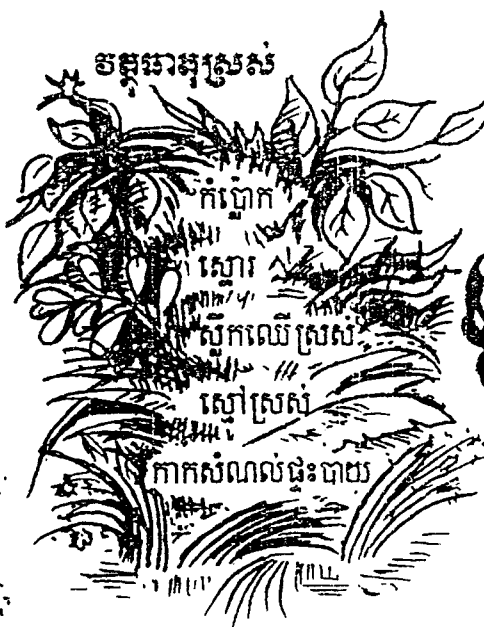 វត្ថុធាតុស្រស់
កំប្លោក
ស្លោរ
ស្លឹកឈើស្រស់
ស្មៅស្រស់
កាកសំណល់ផ្ទះបាយ